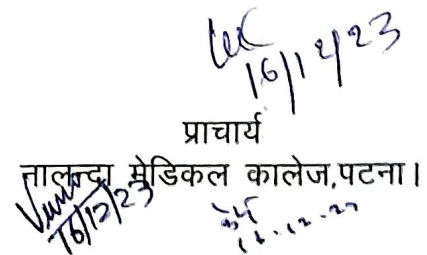 16/12/23
प्राचार्य
नालन्दा मेडिकल कालेज,पटना।
16/12/23